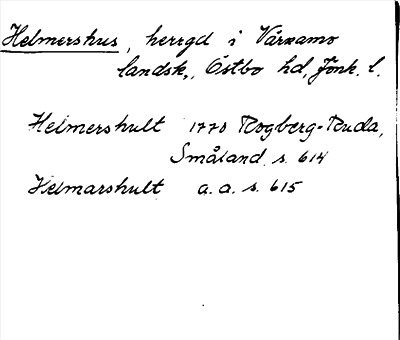 Helmershus, herrgd i Värnamo
landsk., Östbo hd, Jönk. l.
Helmershult 1770 Rogberg-Ruda,
Småland s. 614
Helmarshult a. a. s. 615